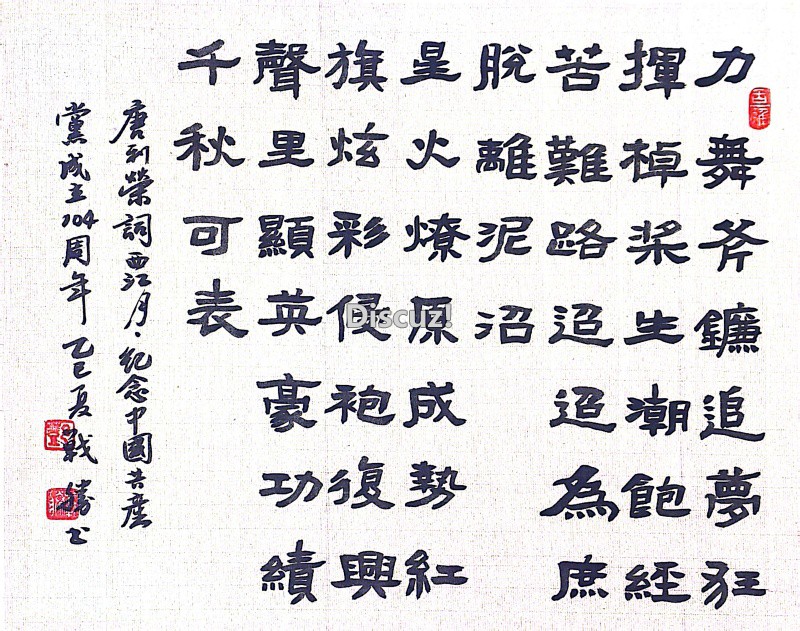 力舞斧鐮追夢狂
揮棹桨生潮飽經
苦難路迢迢為庶
脫離泥沼
星火燎原成勢紅
旗炫彩侵袍復興
聲里顯英豪功績
千秋可表
唐利榮詞西江月·紀念中國共產
黨成立104周年乙巳夏戰勝书
Discuz!